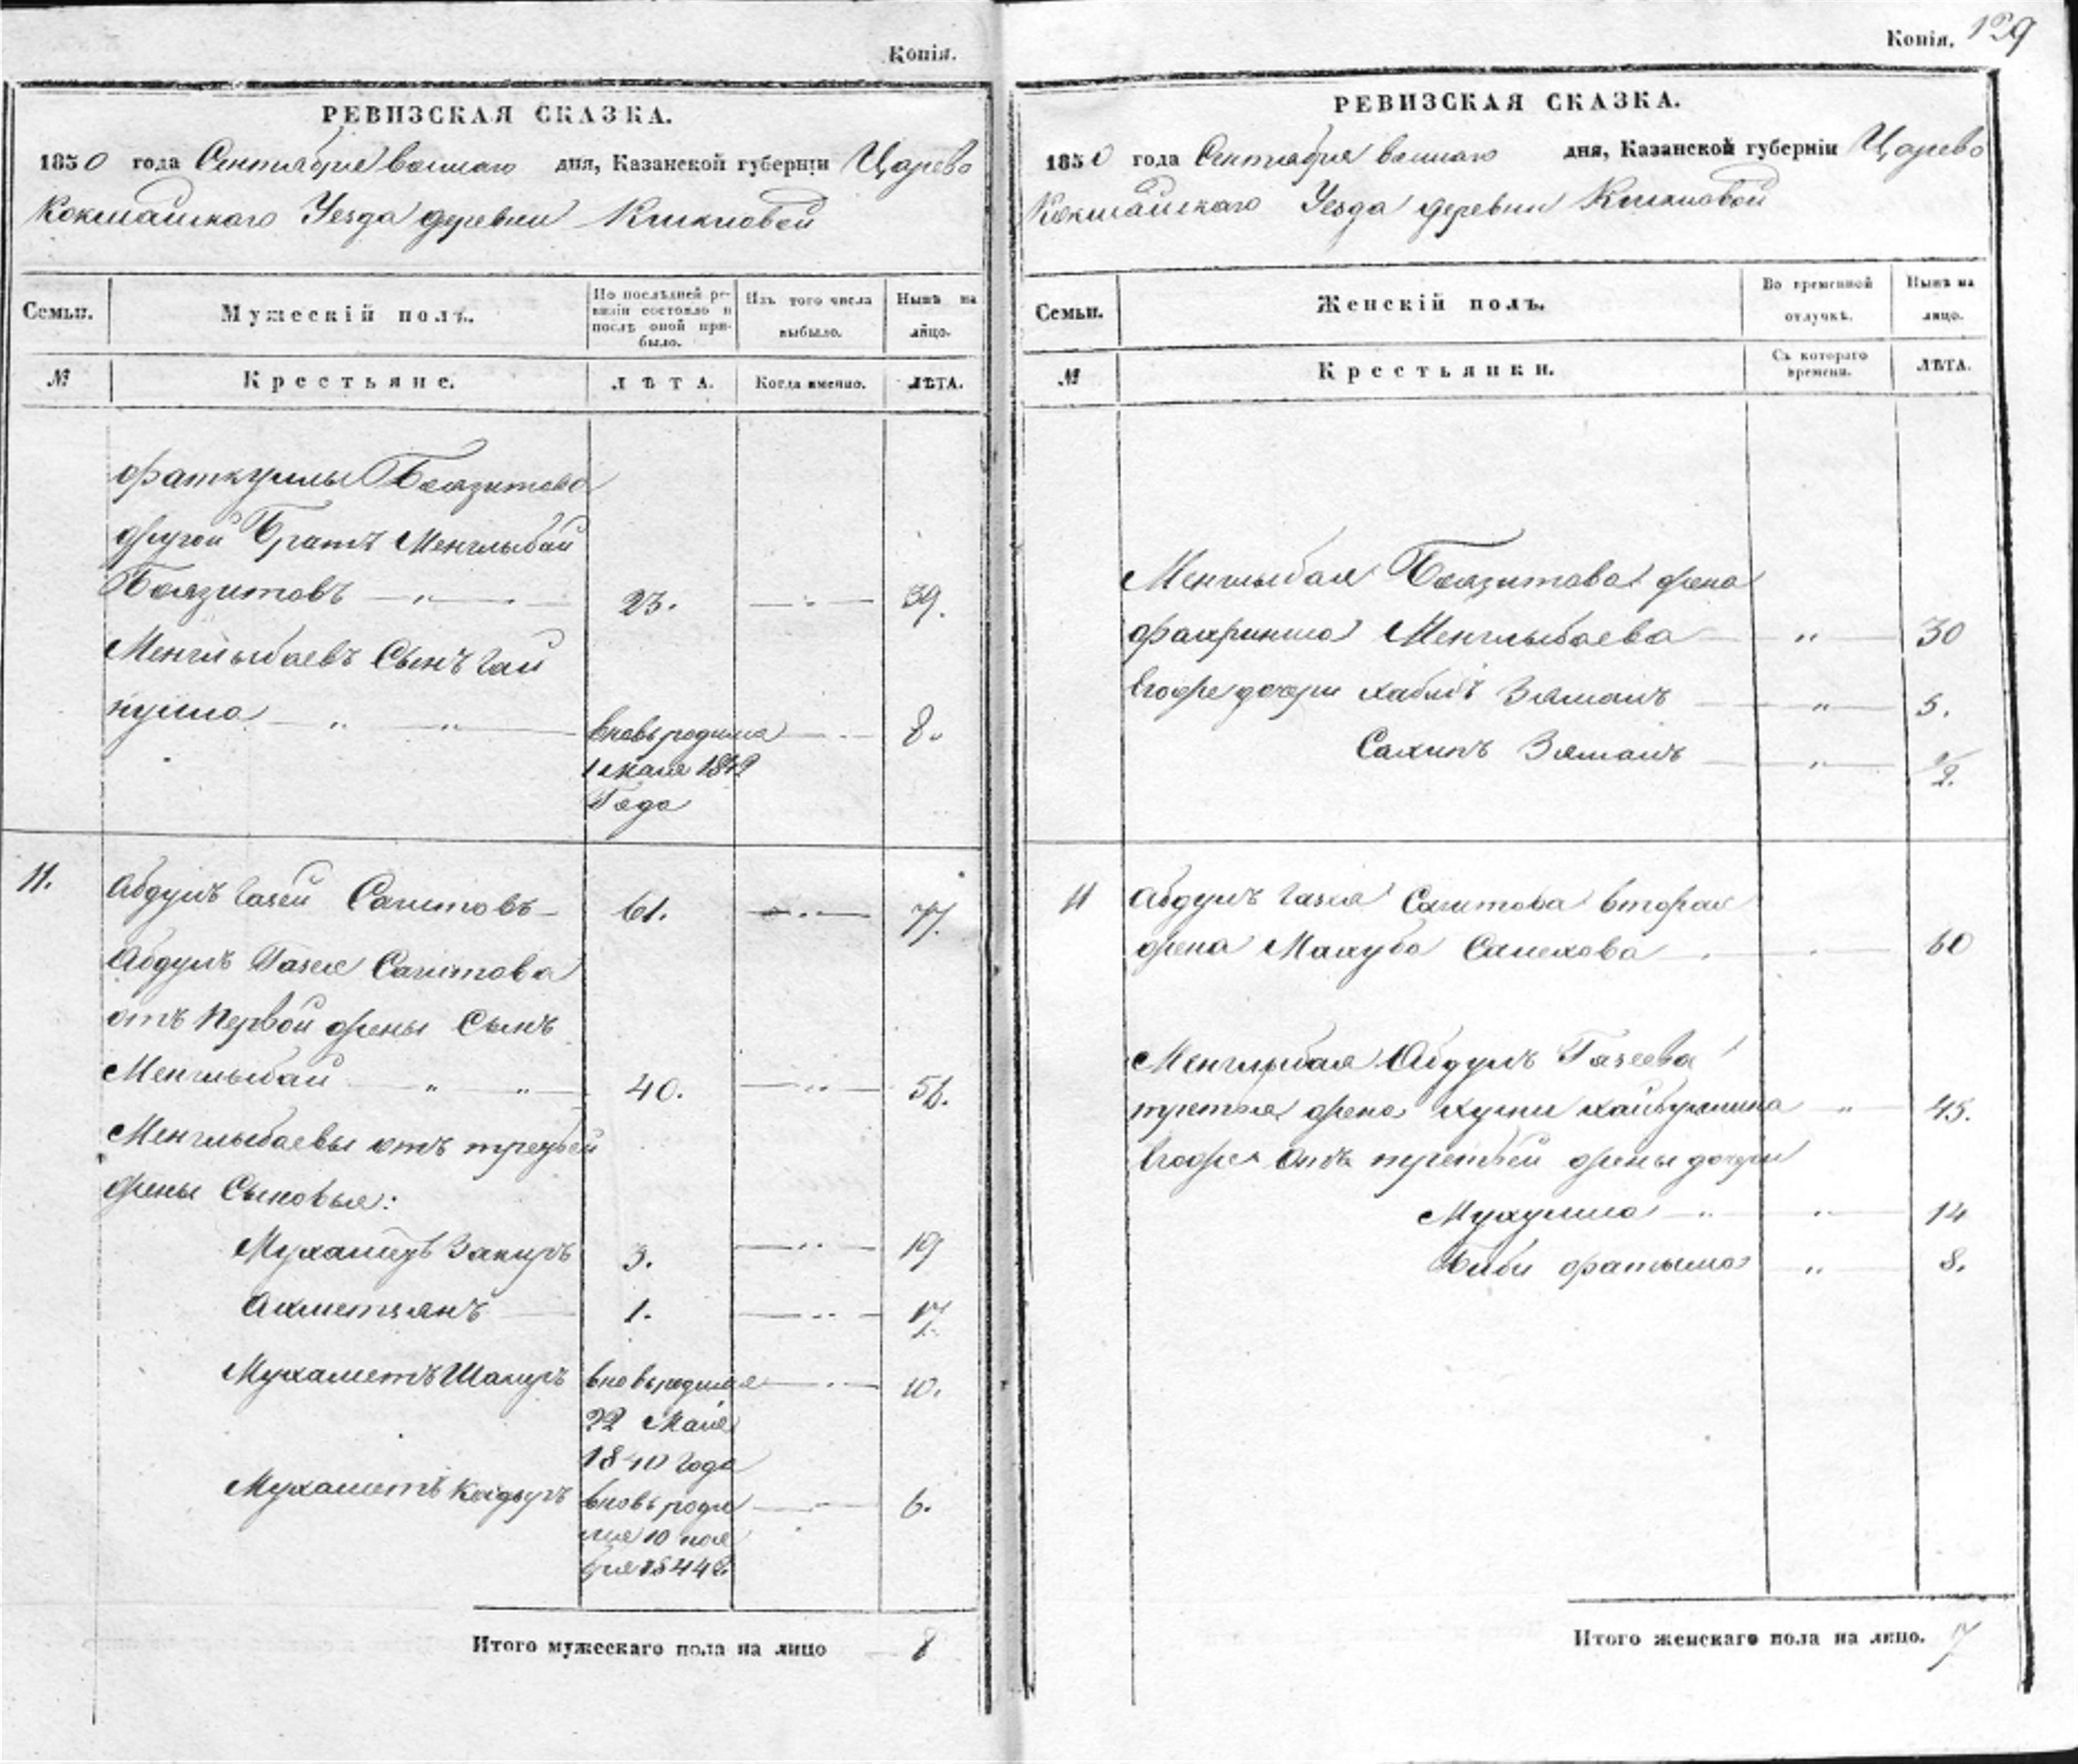 Копія.
РЕВИЗСКАЯ СКАЗКА.
1850 года Сентября восмаго дня, Казанской губерніи Царево
Кокшайскаго Уезда деревни
Семьи.
Мужескій полъ.
По послѣдней ре-
визіи состояло и
послѣ оной при-
было.
Изъ того числа
выбыло.
Нынѣ на
лицо.
№
Крестьяне.
ЛѢТА.
Когда именно.
ЛѢТА.
Фаткуллы Баязитова
другой Братъ Менглыбай
Баязитовъ — „ — 23. — „ — 39.
Менглыбаевъ Сынъ Гай
нулла — „ — „ — вновь родился — „ — 8.
1 Мая 1842
Года
11. Абдулъ Газей Сагитовъ — 61. — „ — 77.
Абдулъ Газея Сагитова
отъ Первой жены Сынъ
Менглыбай — „ — „ — 40. — „ — 56.
Менглыбаевы отъ третьей
жены Сыновья:
Мухаметъ Закиръ 3. — „ — 19
Ахметзянъ — 1. — „ — 17.
Мухаметъ Шакиръ вновь родился — „ — 10.
22 Мая
1840 года
Мухаметъ Кадыръ вновь роди — „ — 6.
лся 10 ноя
бря 1844 г.
Итого мужескаго пола на лицо 8
Копія. 129
РЕВИЗСКАЯ СКАЗКА.
1850 года Сентября восмаго дня, Казанской губерніи Царево
Кокшайскаго Уезда деревни
Семьи.
Женскій полъ.
Во временной
отлучкѣ.
Нынѣ на
лицо.
№
Крестьянки.
Съ котораго
времени.
ЛѢТА.
Менглыбая Баязитова жена
Менглыбаева — „ — 30
Егоже дочери Хабибъ Зямалъ — „ — 5.
Сахипъ Зямалъ — „ — 1/2.
11 Абдулъ Газея Сагитова вторая
жена Махуба Салехова — „ — 60
Менглыбая Абдулъ Газеева
третья жена Хайбуллина — „ — 45.
Егоже отъ третьей жены дочери
— „ — „ — 14
Биби Фатыма — „ — 8.
Итого женскаго пола на лицо. 7